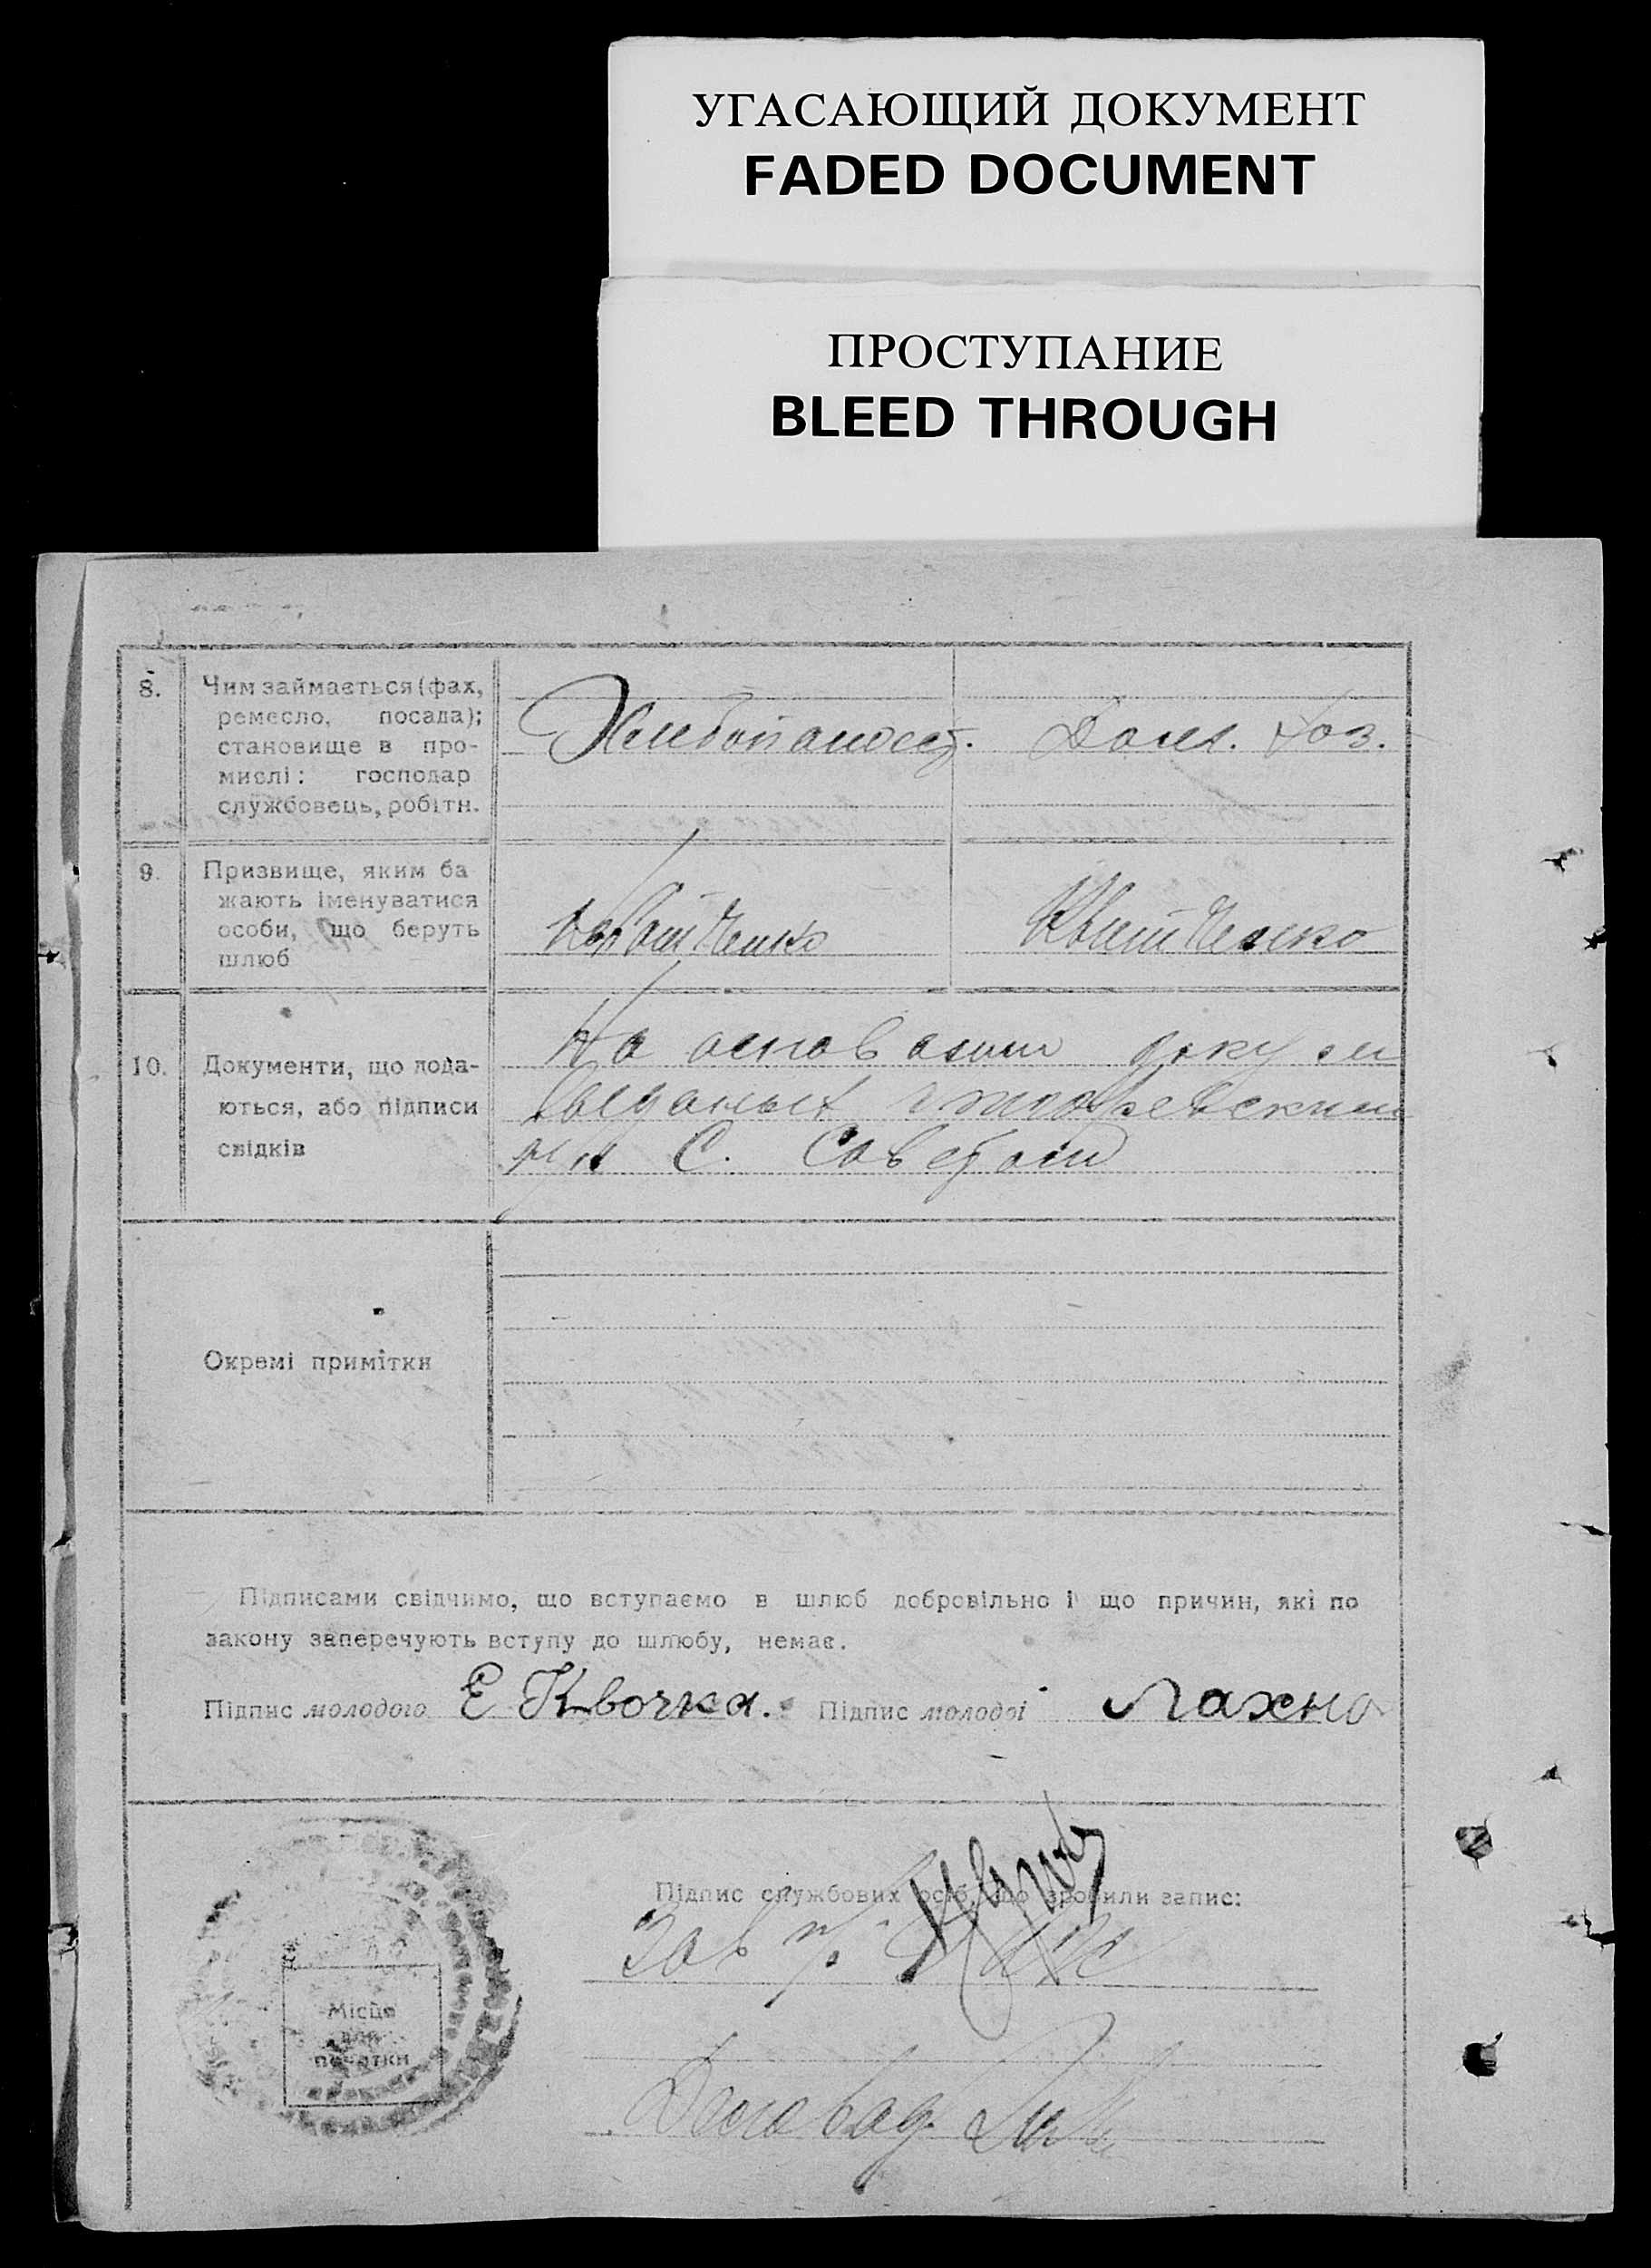 УГАСАЮЩИЙ ДОКУМЕНТ
FADED DOCUMENT
ПРОСТУПАНИЕ
BLEED THROUGH
8.
Чим займається (фах,
ремесло, посада);
становище в про-
мислі: господар
службовець, робітн.
Хлебопашест.
Дом. хоз.
9.
Призвище, яким ба
жають іменуватися
особи, що беруть
шлюб
Квитченко
Квитченко
10.
Документи, що дода-
ються, або підписи
свідків
На основании докум
выданых
С. Советом
Окремі примітки
Підписами свідчимо, що вступаємо в шлюб добровільно і що причин, які по
закону заперечують вступу до шлюбу, немає.
Підпис молодого Е Квочка. Підпис молодої Лахно
Підпис службових осіб, що зробили запис:
Зав
Місце
для
печатки
Деловод.